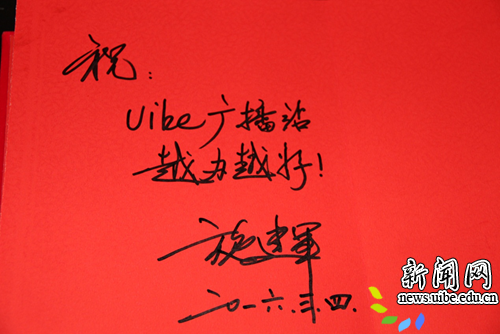 祝：
Uibe广播站
越办越好！
施建军
二〇一六.三.四.
新闻网
news.uibe.edu.cn